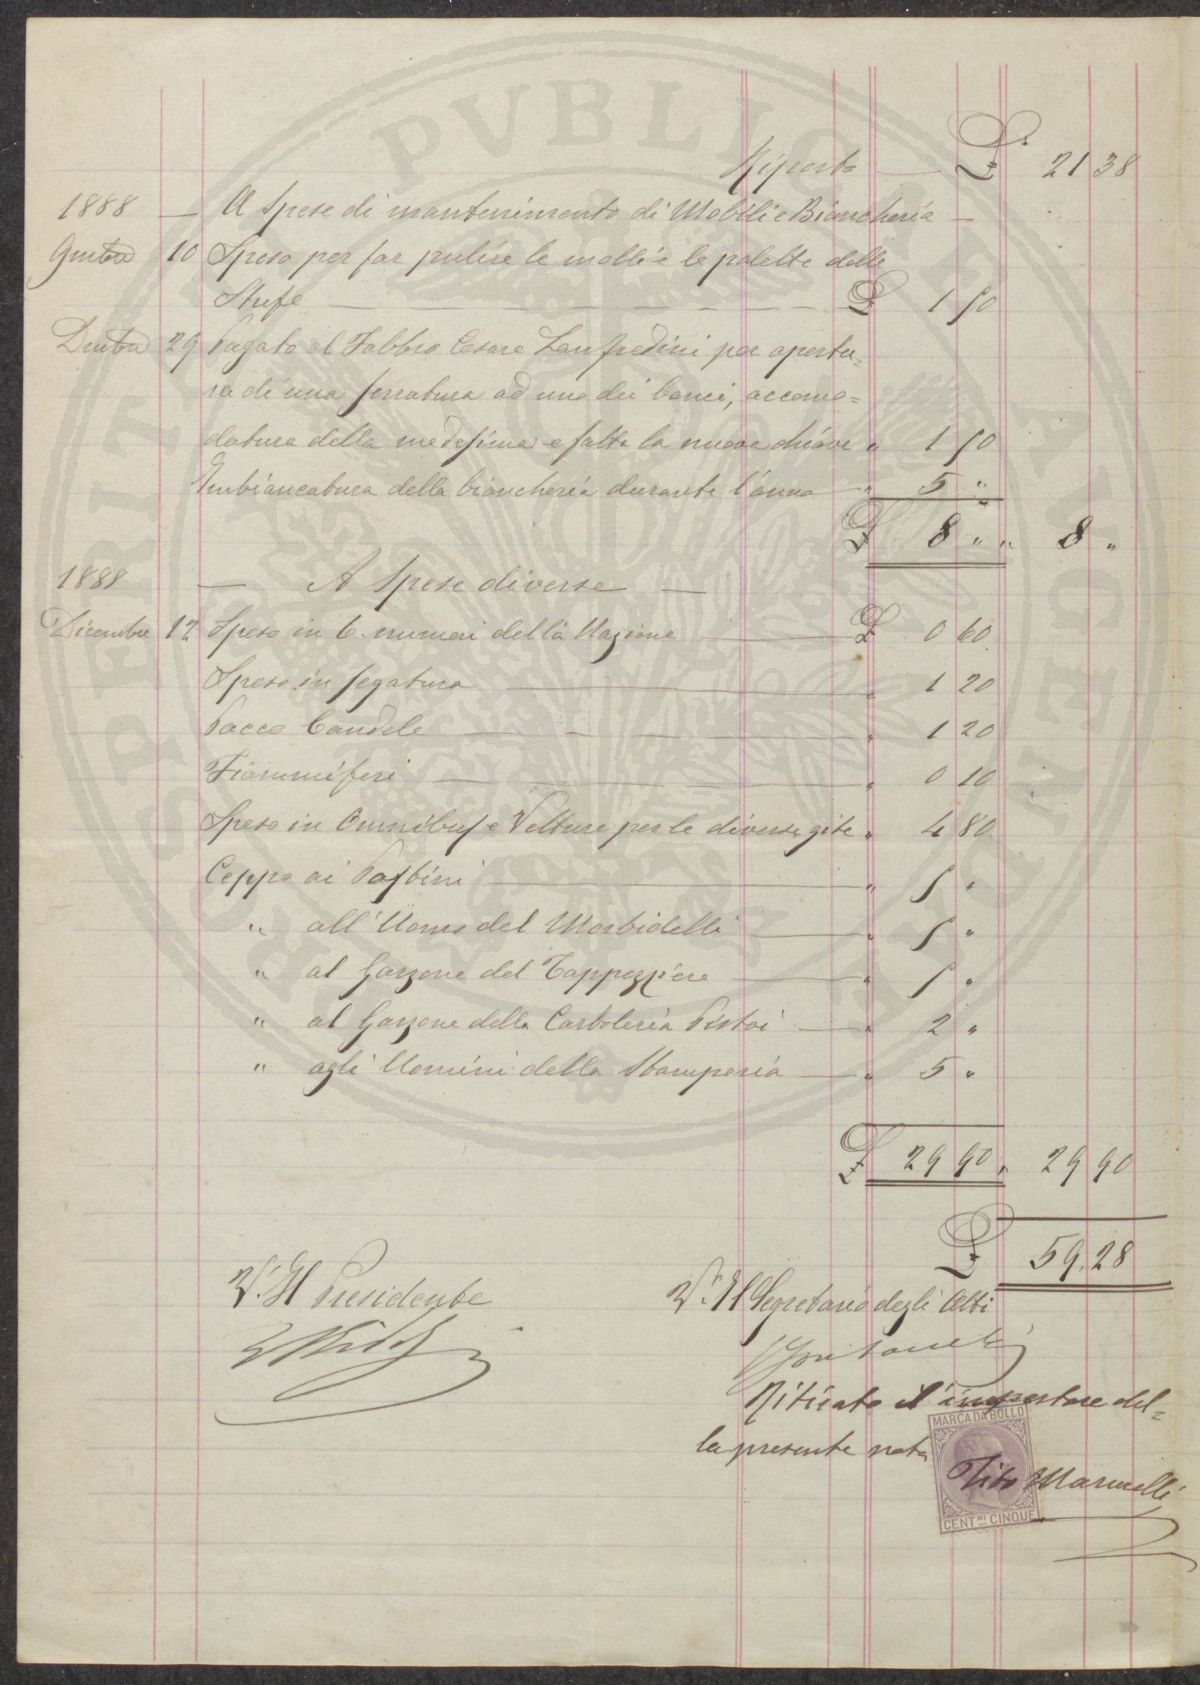 Riporto £ 21 38
1888 — A Spese di mantenimento di Mobili e Biancheria —
9mbre 10 Speso per far pulire le molli e le palette delle
Stufe £ 1 50
Dmbre 29 Pagato al Fabbro Cesare Lanfredini per apertu=
ra di una serratura ad uno dei banci, accomo=
datura della medesima e fatta la nuova chiave " 1 50
Imbiancatura della biancheria durante l'anno " 5 "
£ 8 " " 8 "
1888 — A Spese diverse —
Dicembre 12 Speso in 6 numeri della Nazione £ 0 60
Speso in segatura " 1 20
Pacco Candele " 1 20
Fiammiferi " 0 10
Speso in Omnibus e Vetture per le diverse gite " 4 80
Ceppo ai Postini " 5 "
" all'Uomo del Morbidelli " 5 "
" al Garzone del Tappezziere " 5 "
" al Garzone della Cartoleria Pistoi " 2 "
" agli Uomini della Stamperia " 5 "
£ 29 90 " 29 90
£ 59.28
V.° Il Presidente
V.° Il Segretario degli Atti
Ritirato il importare del=
la presente nota
MARCA DA BOLLO
Tito Marucelli
CENT.MI CINQUE
PVBLICAE